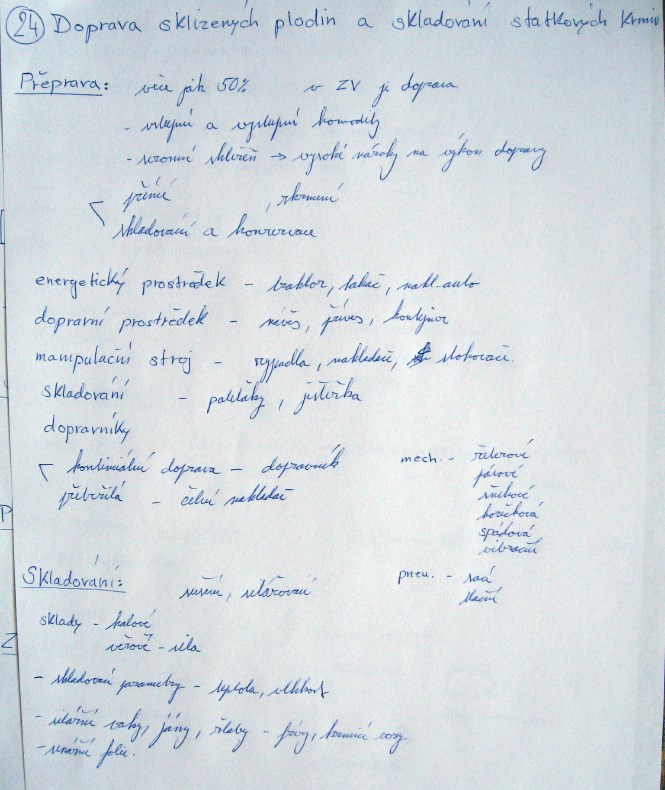 24 Doprava sklizených plodin a skladování statkových krmiv
Přeprava: více jak 50% v ZV je doprava
- vstupní a výstupní komodity
- sezonní sklizeň → vysoké nároky na výkon dopravy
přímé , zkrmení
skladování a konzervace
energetický prostředek - traktor, tahač, nákl. auto
dopravní prostředek - návěs, přívěs, kontejner
manipulační stroj - rypadla, nakladač, stohovače.
skladování - paleťáky, ještěrka
dopravníky
kontinuální doprava - dopravník
přetržitá - čelní nakladač
mech. - řetězové
pásové
šnekové
korečková
spádová
vibrační
pneu. - sací
tlační
Skladování: sušení, silážování
sklady - halové
věžové - sila
- skladovací parametry - teplota, vlhkost
- silážní vaky, jámy, žlaby - frézy, krmné vozy
folie.